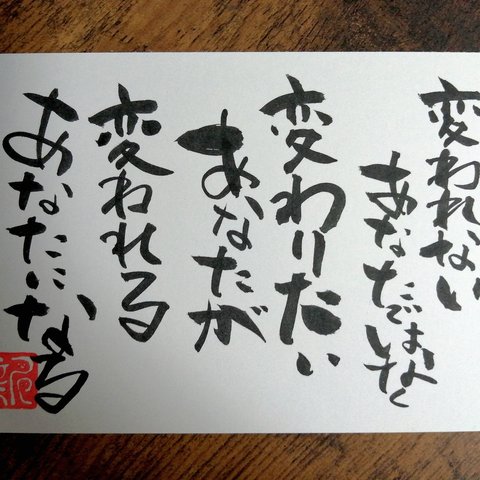 変われない
あなたではなく
変わりたい
あなたが
変われる
あなたになる